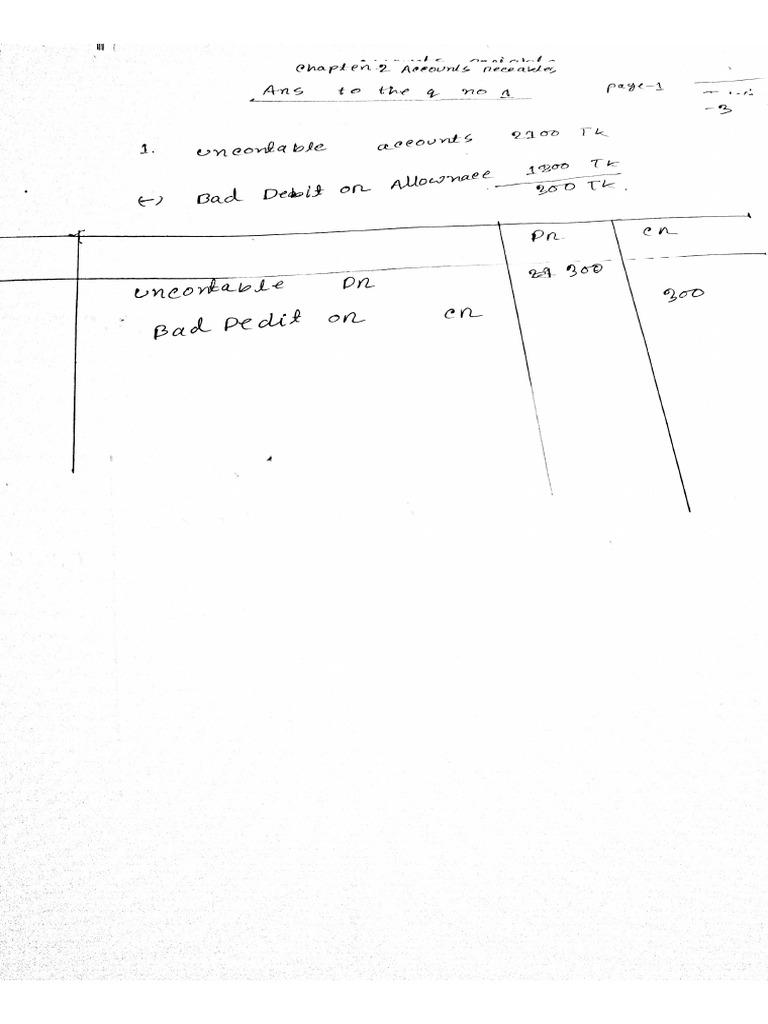 Chapter:2 Accounts Receables
Ans to the q no 1 page-1
-3
1. uncontable accounts 2100 TK
(-) Bad Debit on Allownaee 1800 TK
300 TK.
Dr. Cr
uncontable Dr 300
Bad Dedit on Cr 300